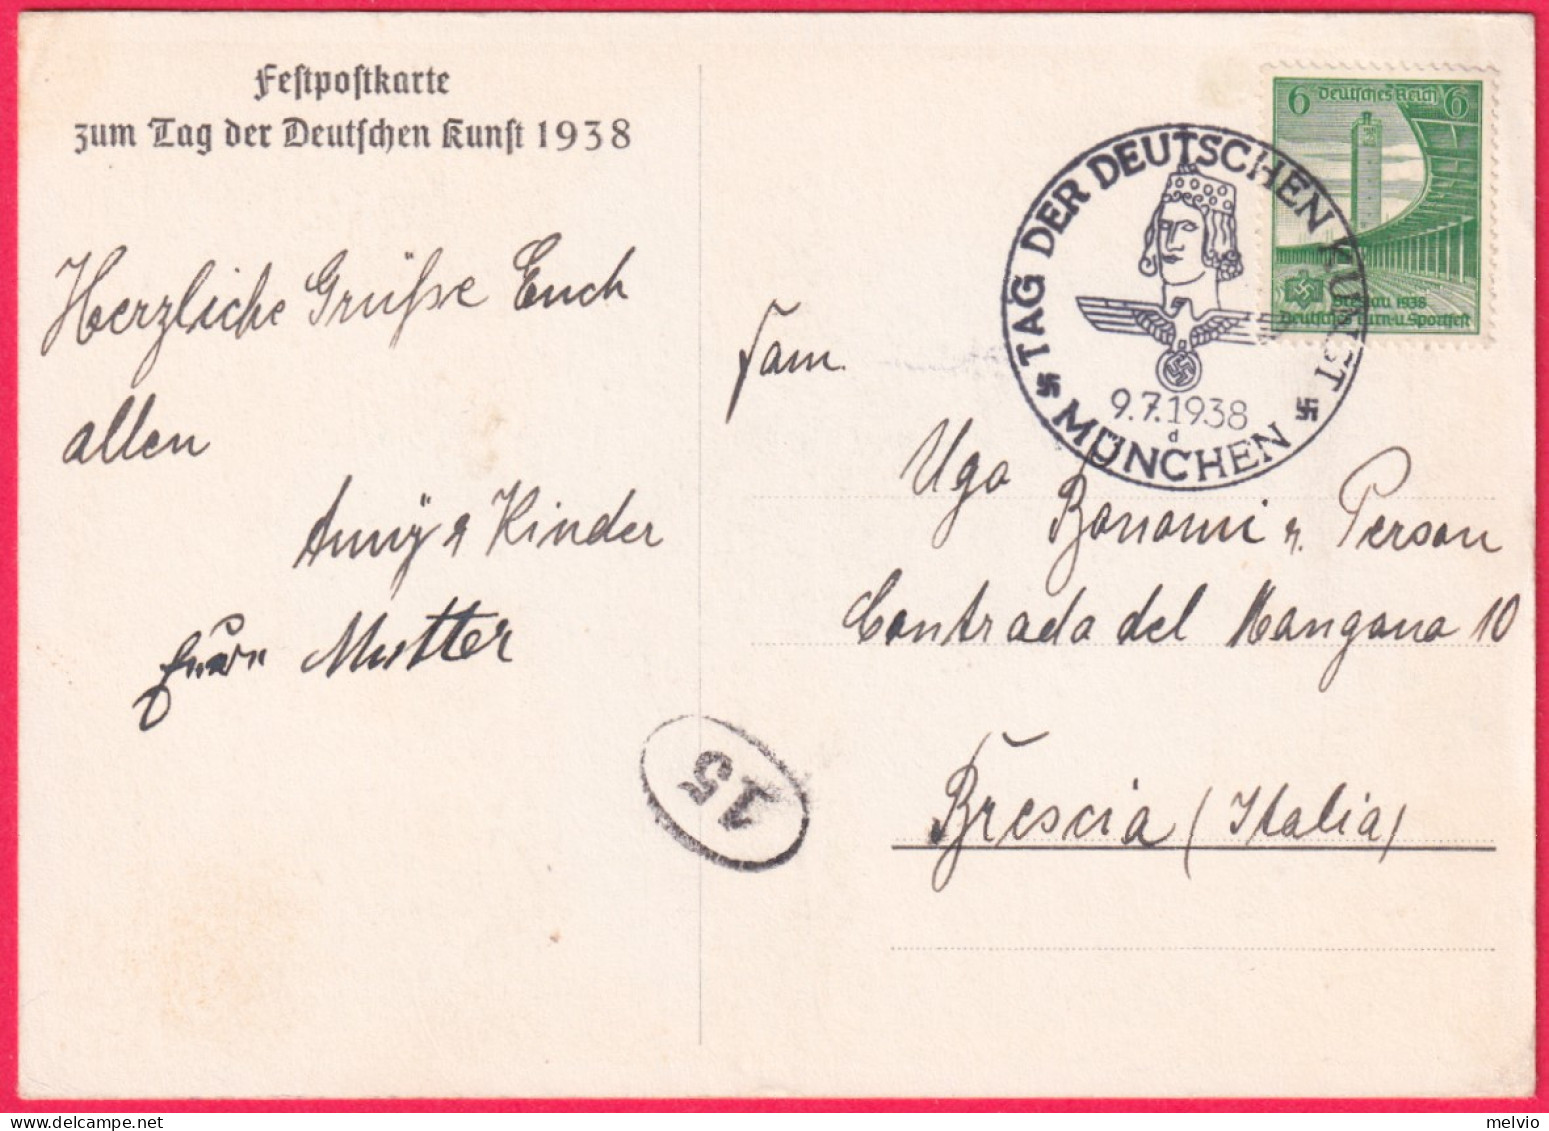 Festpostkarte
zum Tag der Deutschen Kunst 1938
Herzliche Grüße Euch
allen
Anny & Kinder
Mutter
6 Deutsches Reich 6
Breslau 1938
Deutsches Turn-u.Sportfest
TAG DER DEUTSCHEN KUNST
9.7.1938
d
MÜNCHEN
Fam.
Ugo Bonomi
Contrada del Mangano 10
Brescia (Italia)
15
melvio